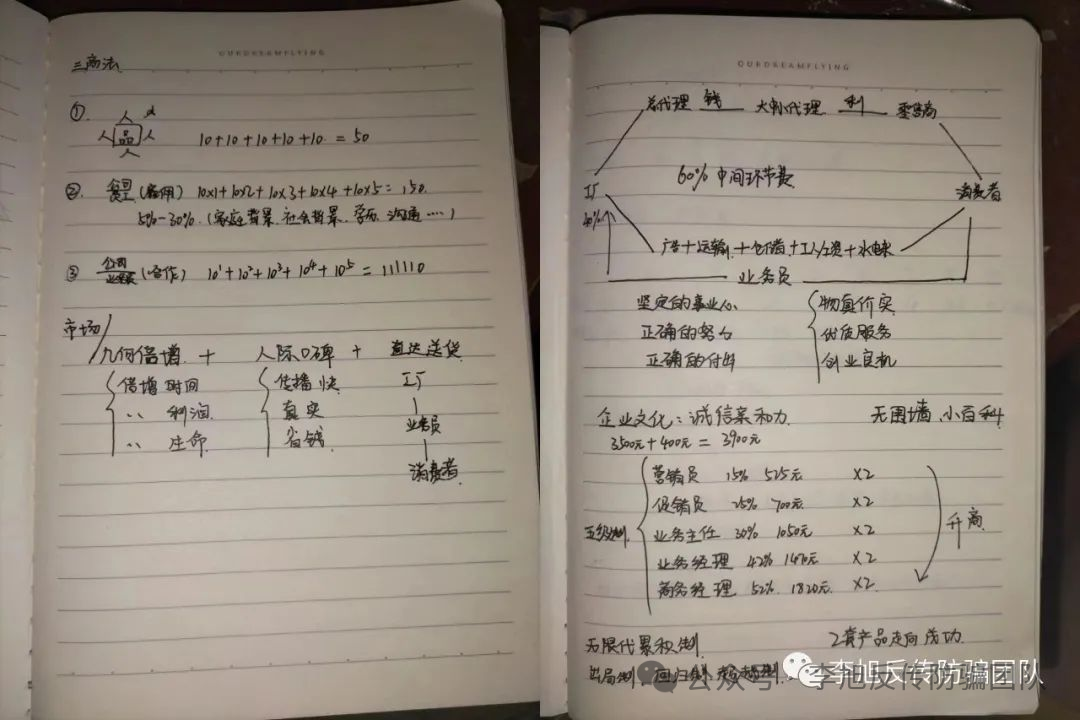 OURDREAMFLYING
三商法
①. 人
人 品 人
人
10+10+10+10+10 = 50
② (雇用) 10×1+10×2+10×3+10×4+10×5=150
5%-30%. (家庭背景. 社会背景. 学历. 沟通……)
③ 公司 (合作) 10¹+10²+10³+10⁴+10⁵ = 111110
业务员
市场
几何倍增 + 人际口碑 + 直达送货
倍增时间 传播快 工厂
〃 利润 真实 业务员
〃 生命 省钱 消费者
OURDREAMFLYING
总代理 钱 大制代理 利 零售商
工厂 60% 中间环节费 消费者
40%
广告+运输+仓储+工人工资+水电
业务员
坚定的事业心 物真价实
正确的努力 优质服务
正确的付出 创业良机
企业文化:诚信亲和力 无围墙 小百科
3500元+400元 = 3900元
五级制
营销员 15% 525元 ×2
促销员 20% 700元 ×2
业务主任 30% 1050元 ×2
业务经理 42% 1470元 ×2
商务经理 52% 1820元 ×2
升商
无限代累积制 2套产品走向成功
出局制 回归制 超越制
公众号·李旭反传防骗团队
李旭反传防骗团队